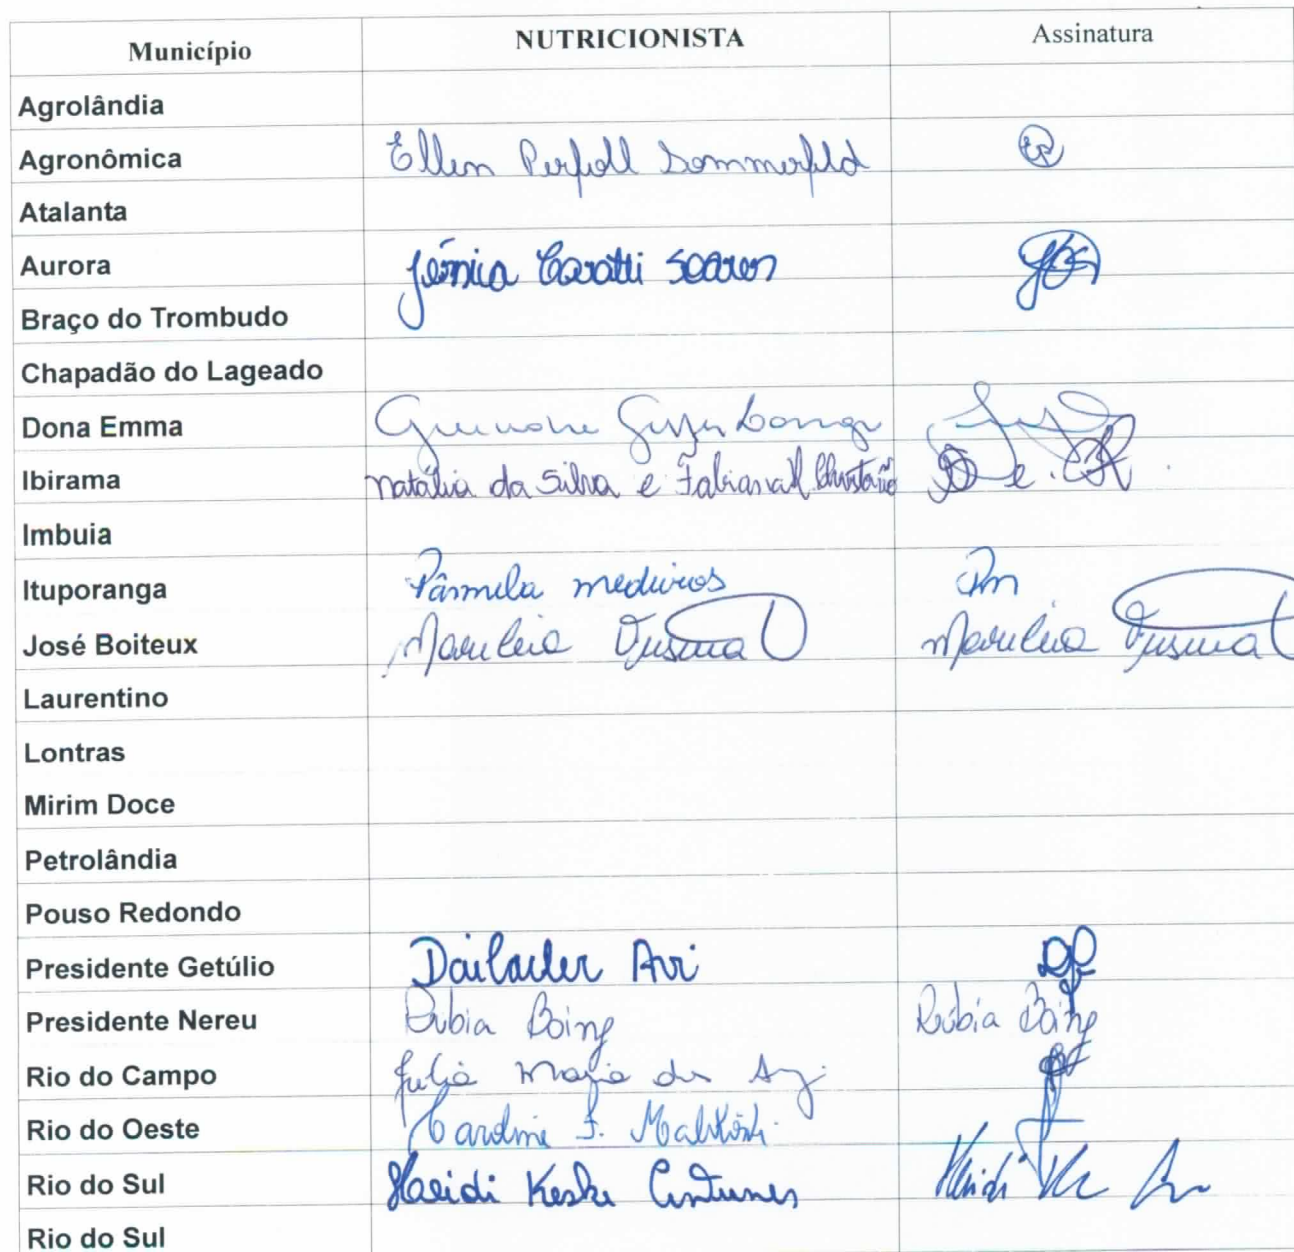 Município NUTRICIONISTA Assinatura
Agrolândia
Agronômica Ellen Perfoll Sommerfeld
Atalanta
Aurora Jésnica Caratti Soares
Braço do Trombudo
Chapadão do Lageado
Dona Emma
Ibirama Natália da Silva e
Imbuia
Ituporanga Pâmela medeiros Pm
José Boiteux Marileia Marileia
Laurentino
Lontras
Mirim Doce
Petrolândia
Pouso Redondo
Presidente Getúlio
Presidente Nereu Rúbia Boing Rúbia Boing
Rio do Campo Julia Maria de
Rio do Oeste Caroline F.
Rio do Sul Heidi Keske Antunes Heidi
Rio do Sul